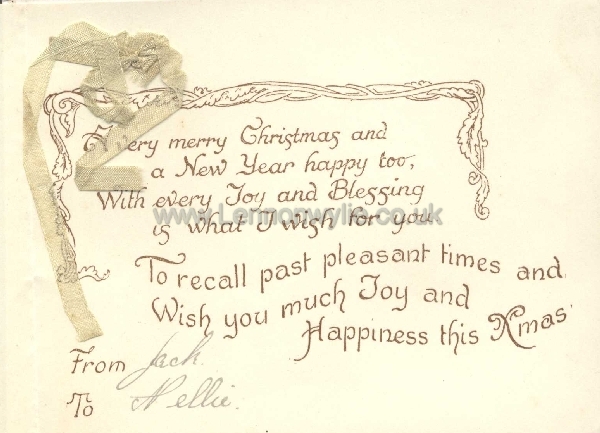 A very merry Christmas and
a New Year happy too,
With every Joy and Blessing
is what I wish for you
www.Lennonwylie.co.uk
To recall past pleasant times and
Wish you much Joy and
Happiness this Xmas
From Jack.
To Nellie.